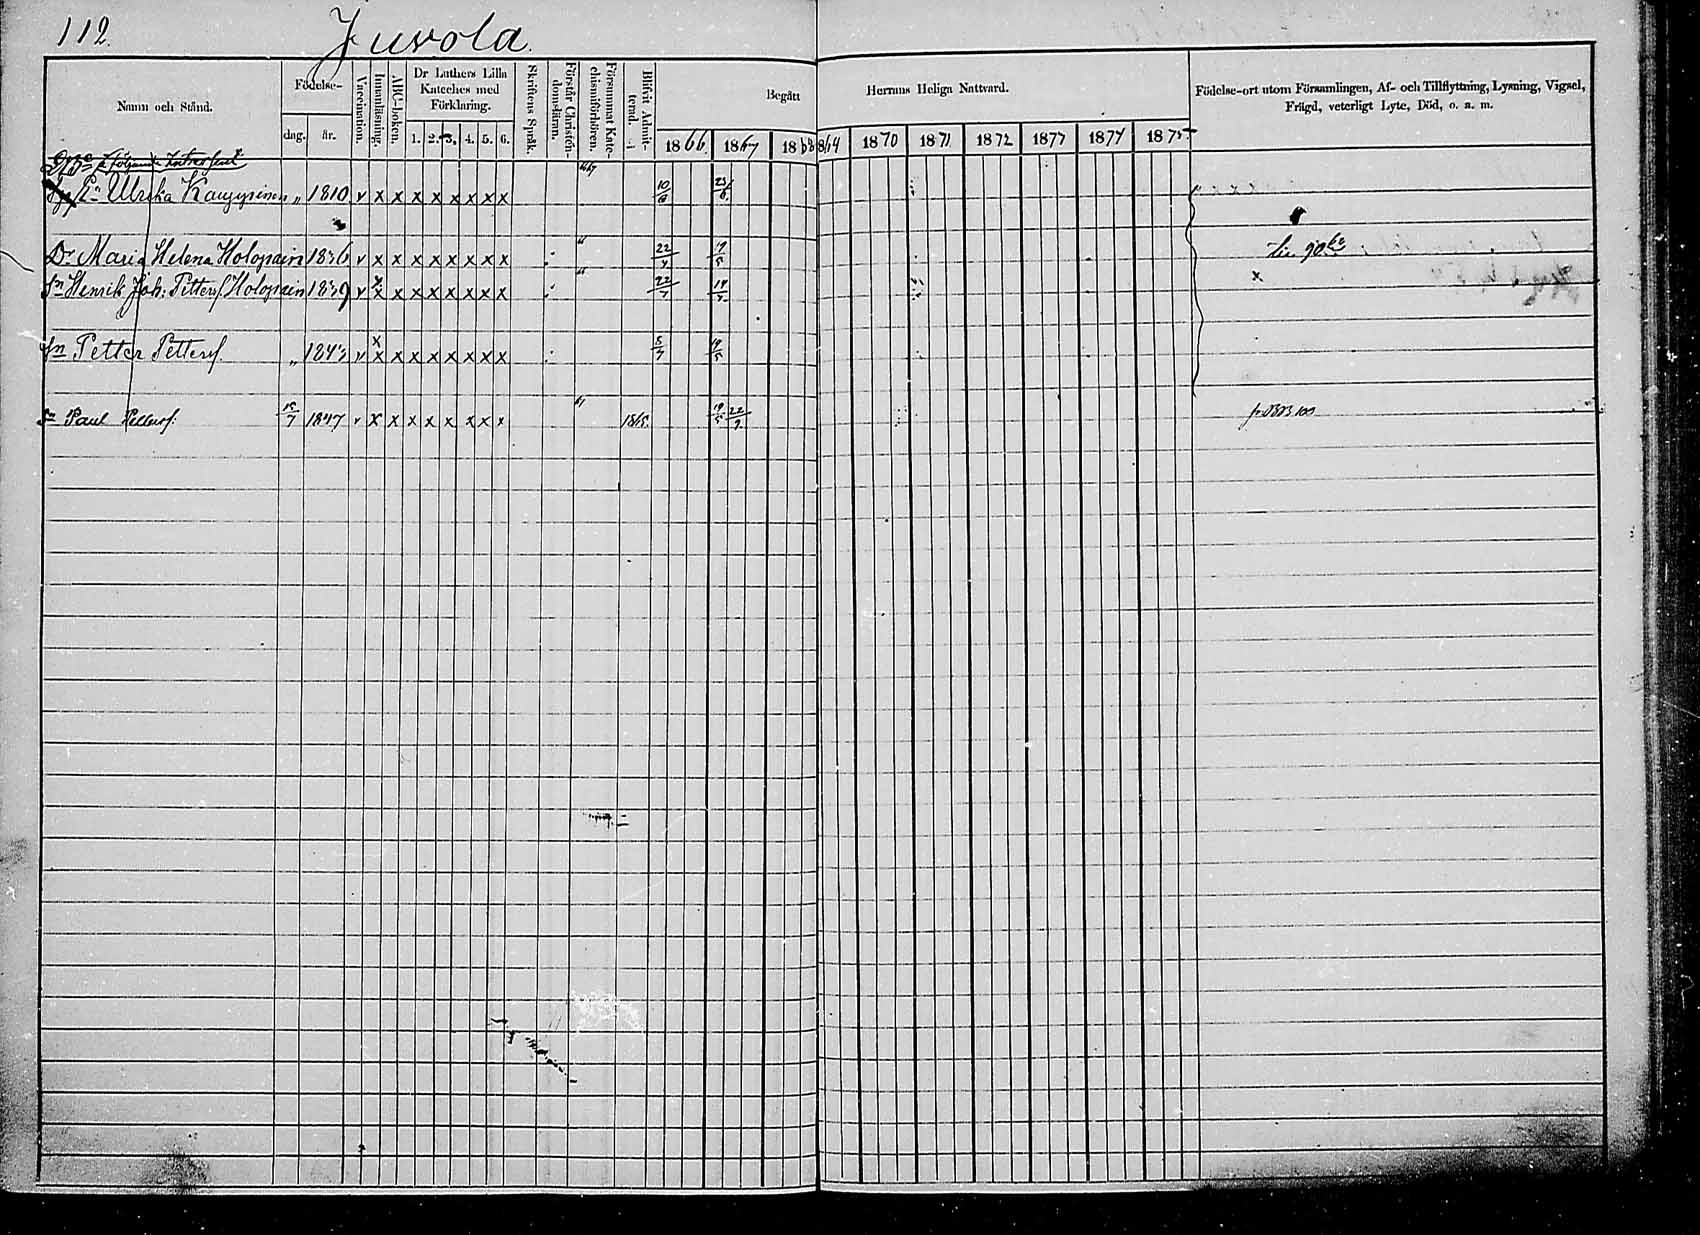 112.
Juvola.
Namn och Stånd.
Födelse-
dag. år.
Vaccination.
Innanläsning.
ABC-boken.
Dr Luthers Lilla Kateches med Förklaring.
1. 2. 3. 4. 5. 6.
Skriftens Språk.
Förstår Christendomsläran.
Försummat Katechismiförhören.
Blifvit Admitterad.
Begått Herrans Heliga Nattvard.
1866 1867 1868 1869 1870 1871 1872 1877 1877 1875
Födelse-ort utom Församlingen, Af- och Tillflyttning, Lysning, Vigsel, Frägd, veterligt Lyte, Död, o. a. m.
Ulrika Kauppinen " 1810 v x x x x x x x x 10/6 23/6
Dr Maria Helena Holopain 1836 v x x x x x x x x 22/4 19/5
Sn Henrik Joh: Petters. Holopain 1839 v x x x x x x x x 22/7 19/5 x
Sn Petter Petters. " 1843 v x x x x x x x x 8/7 19/5
Sn Paul Petters. 15/7 1847 v x x x x x x x x 1865. 19/5 22/9